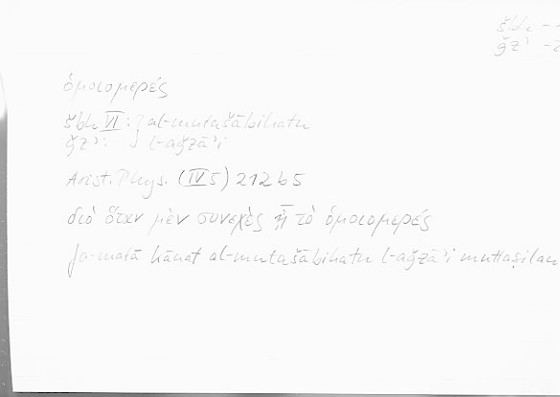 šbh
ǧzʾ
ὁμοιομερές
šbh VI: } al-mutašābihatu
ǧzʾ: } l-aǧzāʾi
Arist. Phys. (IV 5) 212b5
διὸ ὅταν μὲν συνεχὲς ᾖ τὸ ὁμοιομερές
fa-matā kānat al-mutašābihatu l-aǧzāʾi muttaṣilan